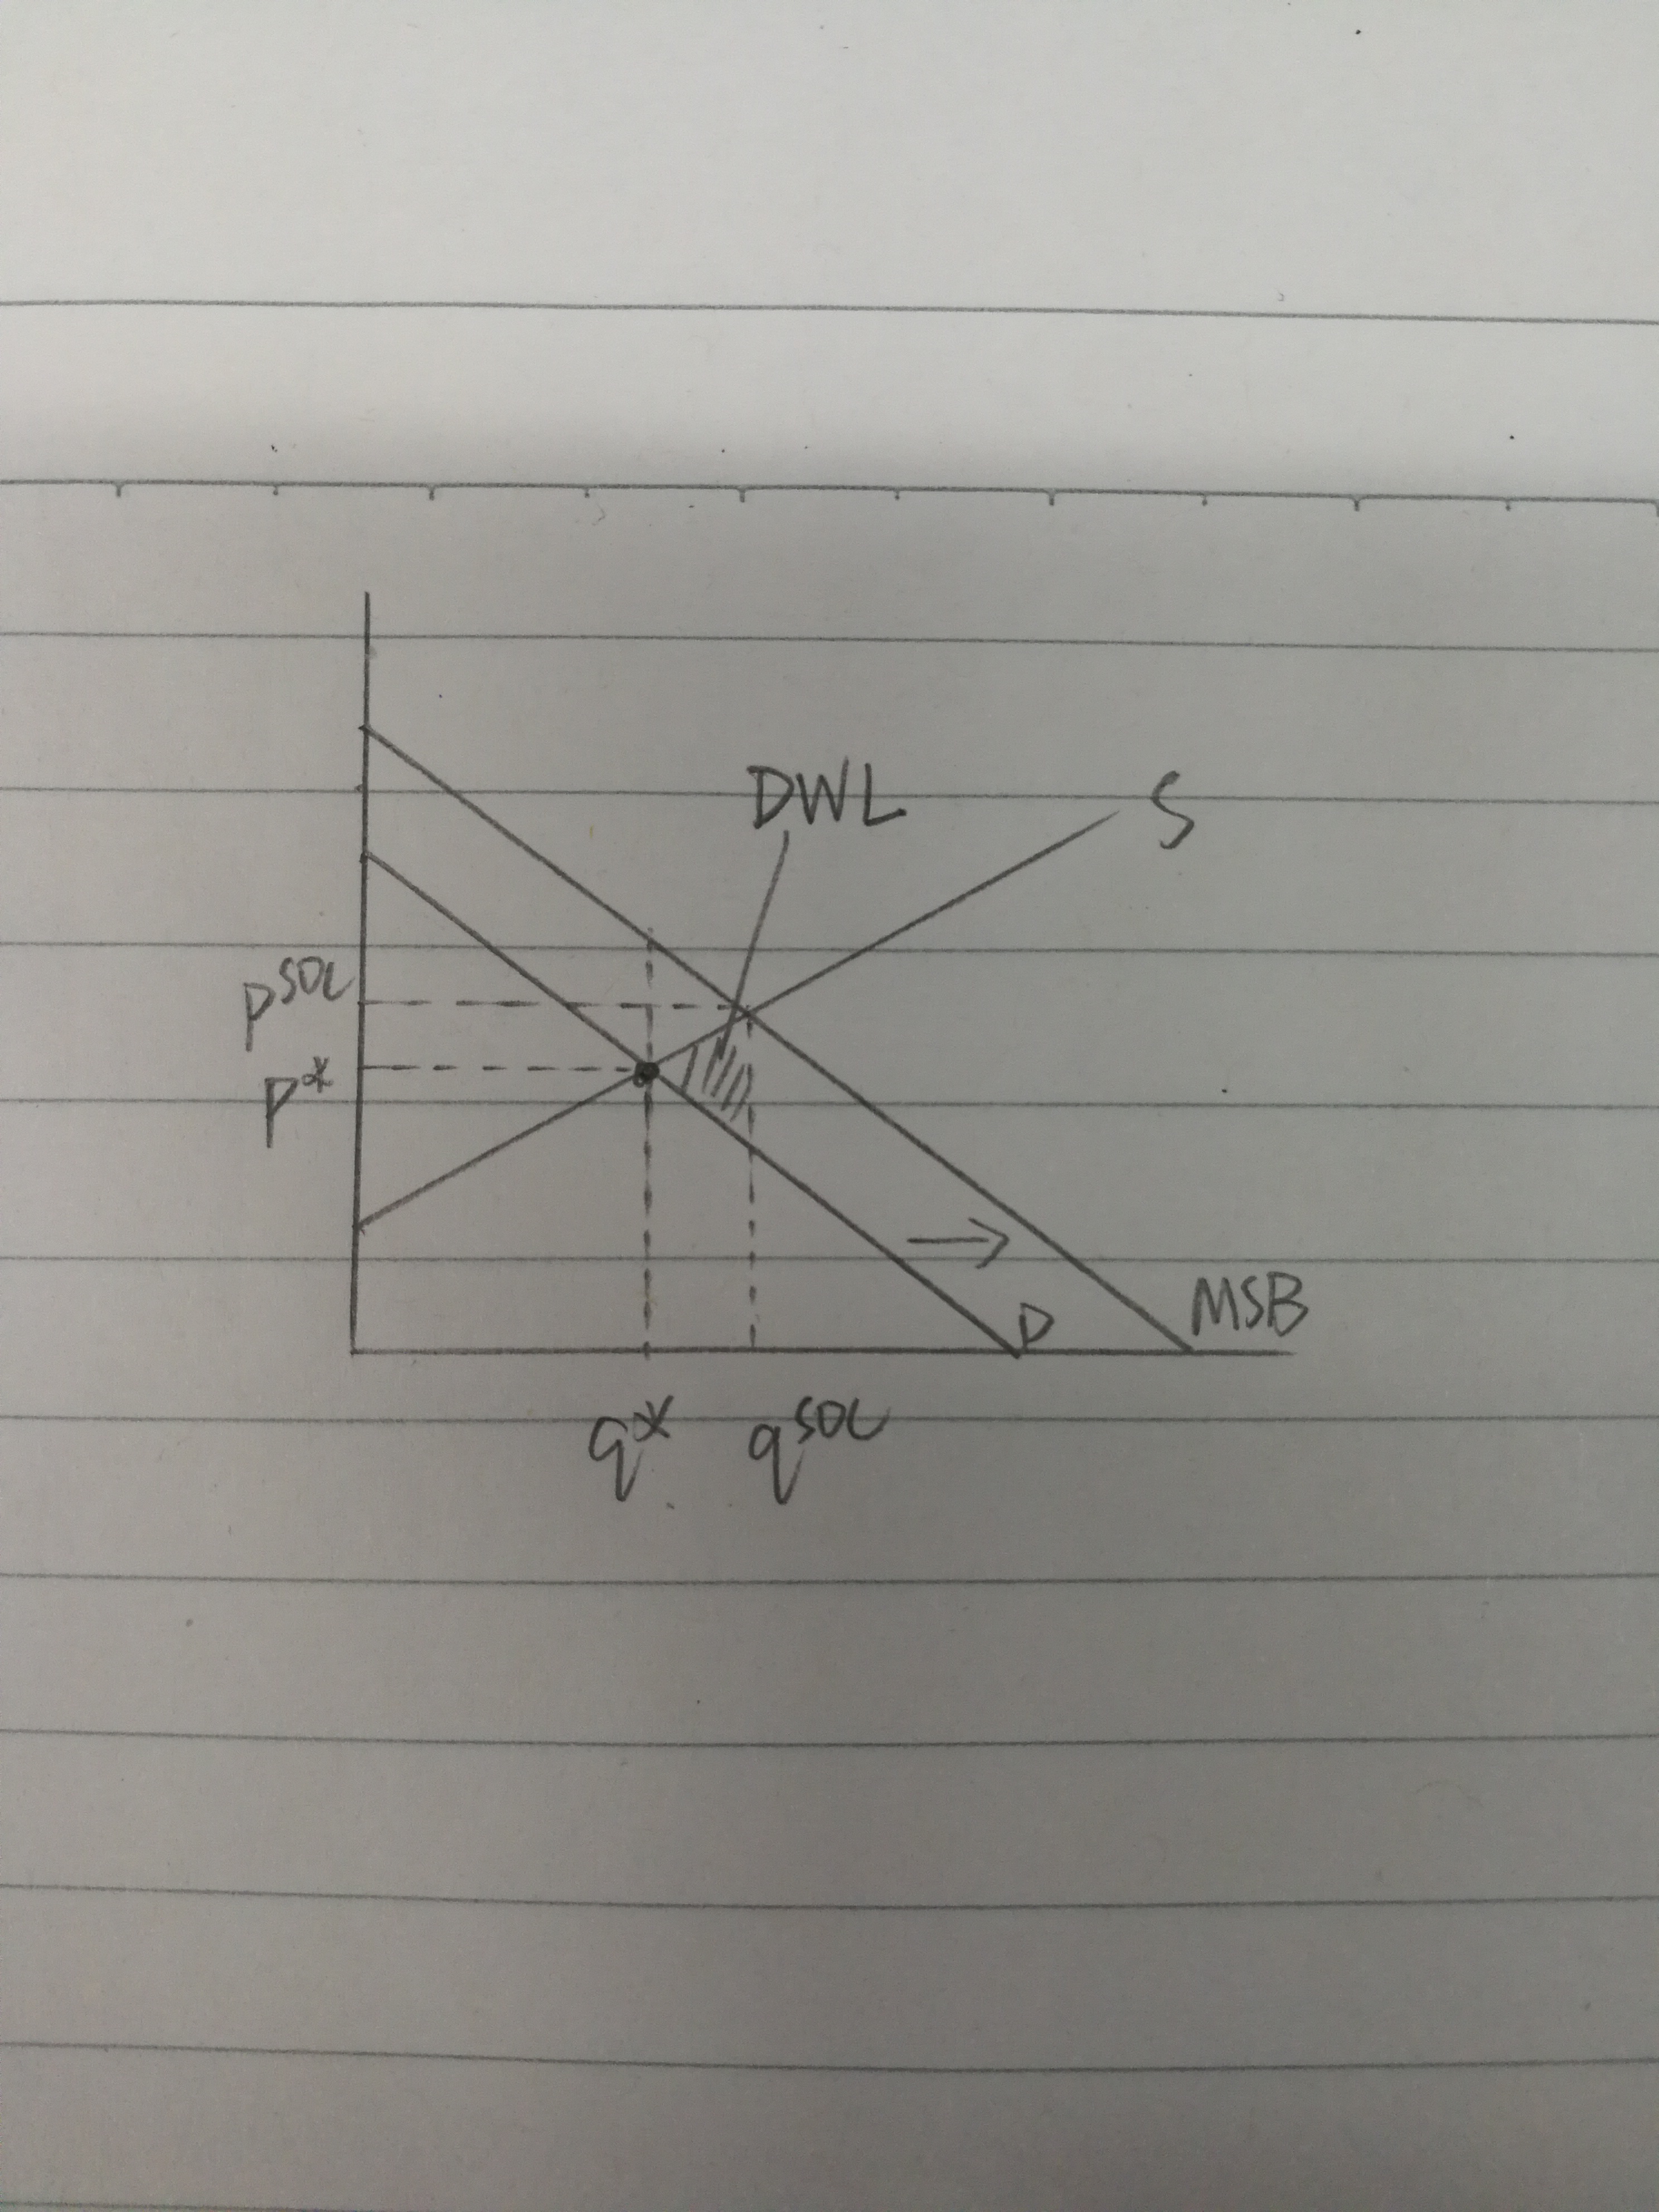 DWL
S
p^soc
p*
D
MSB
q* q^soc